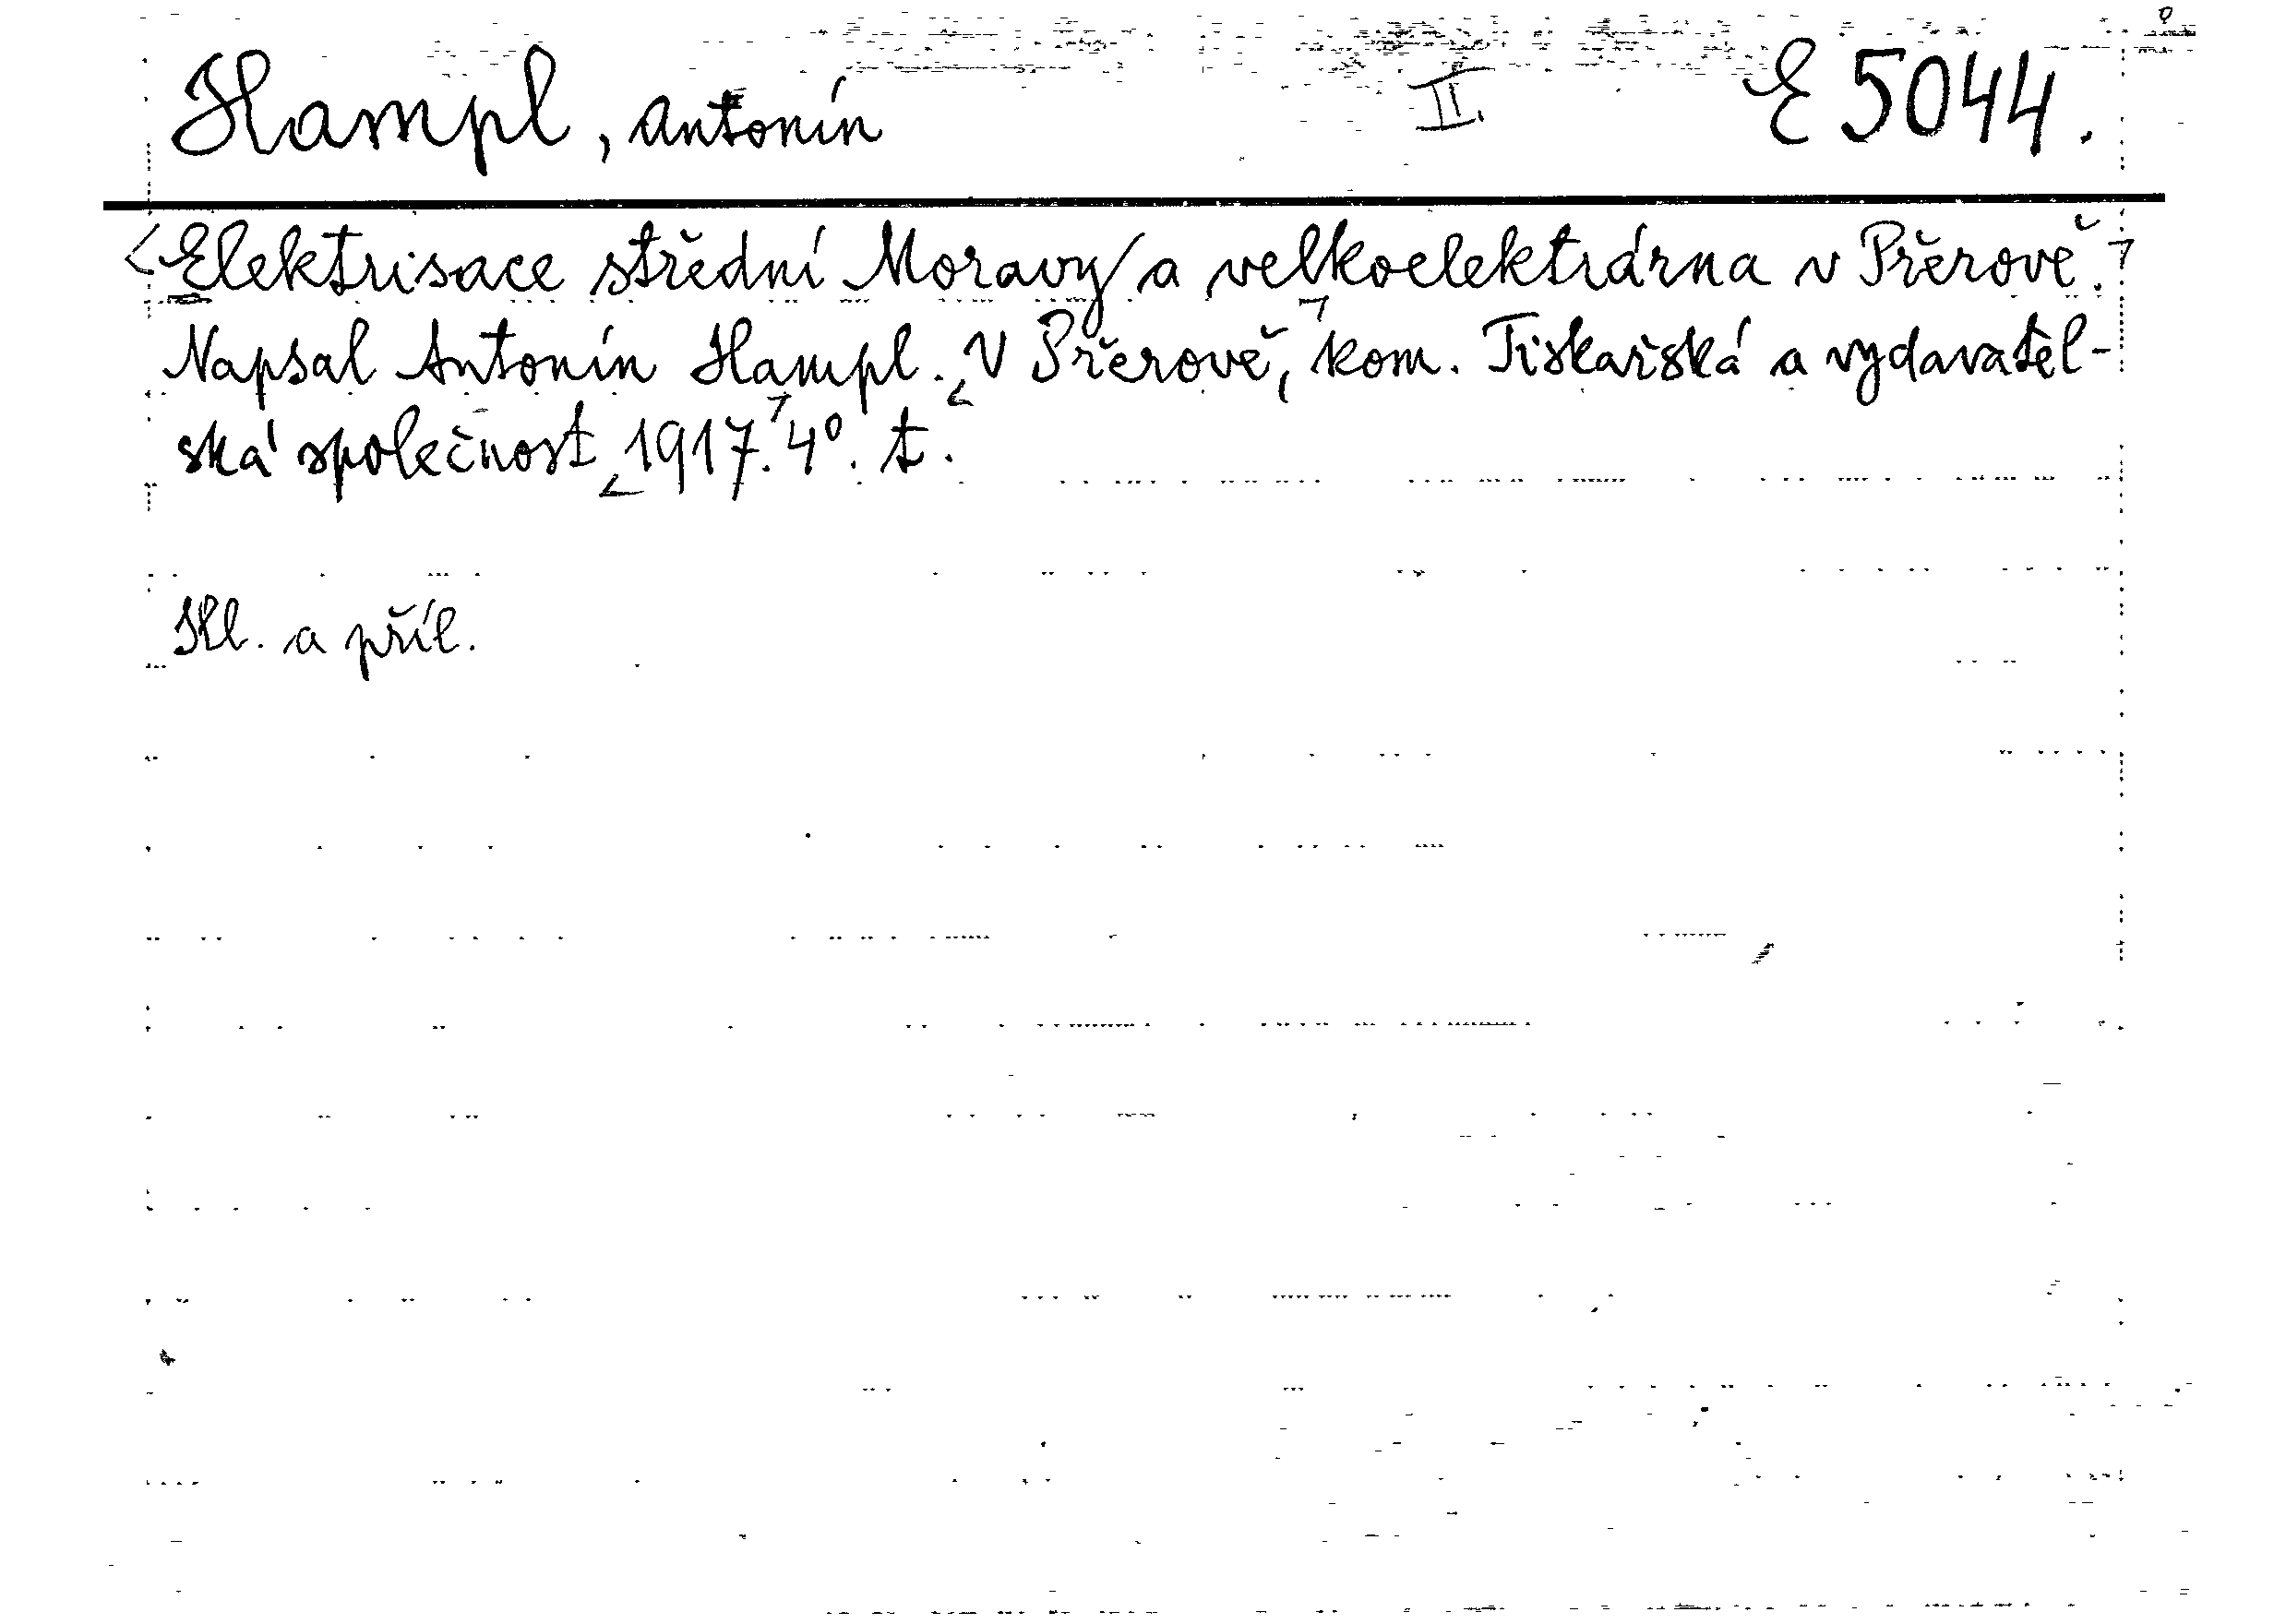 Hampl, Antonín II. E 5044.
<Elektrisace střední Moravy a velkoelektrárna v Přerově.>
Napsal Antonín Hampl. V Přerově, kom. Tiskařská a vydavatel-
ská společnost 1917. 4°. t.
Ill. a příl.